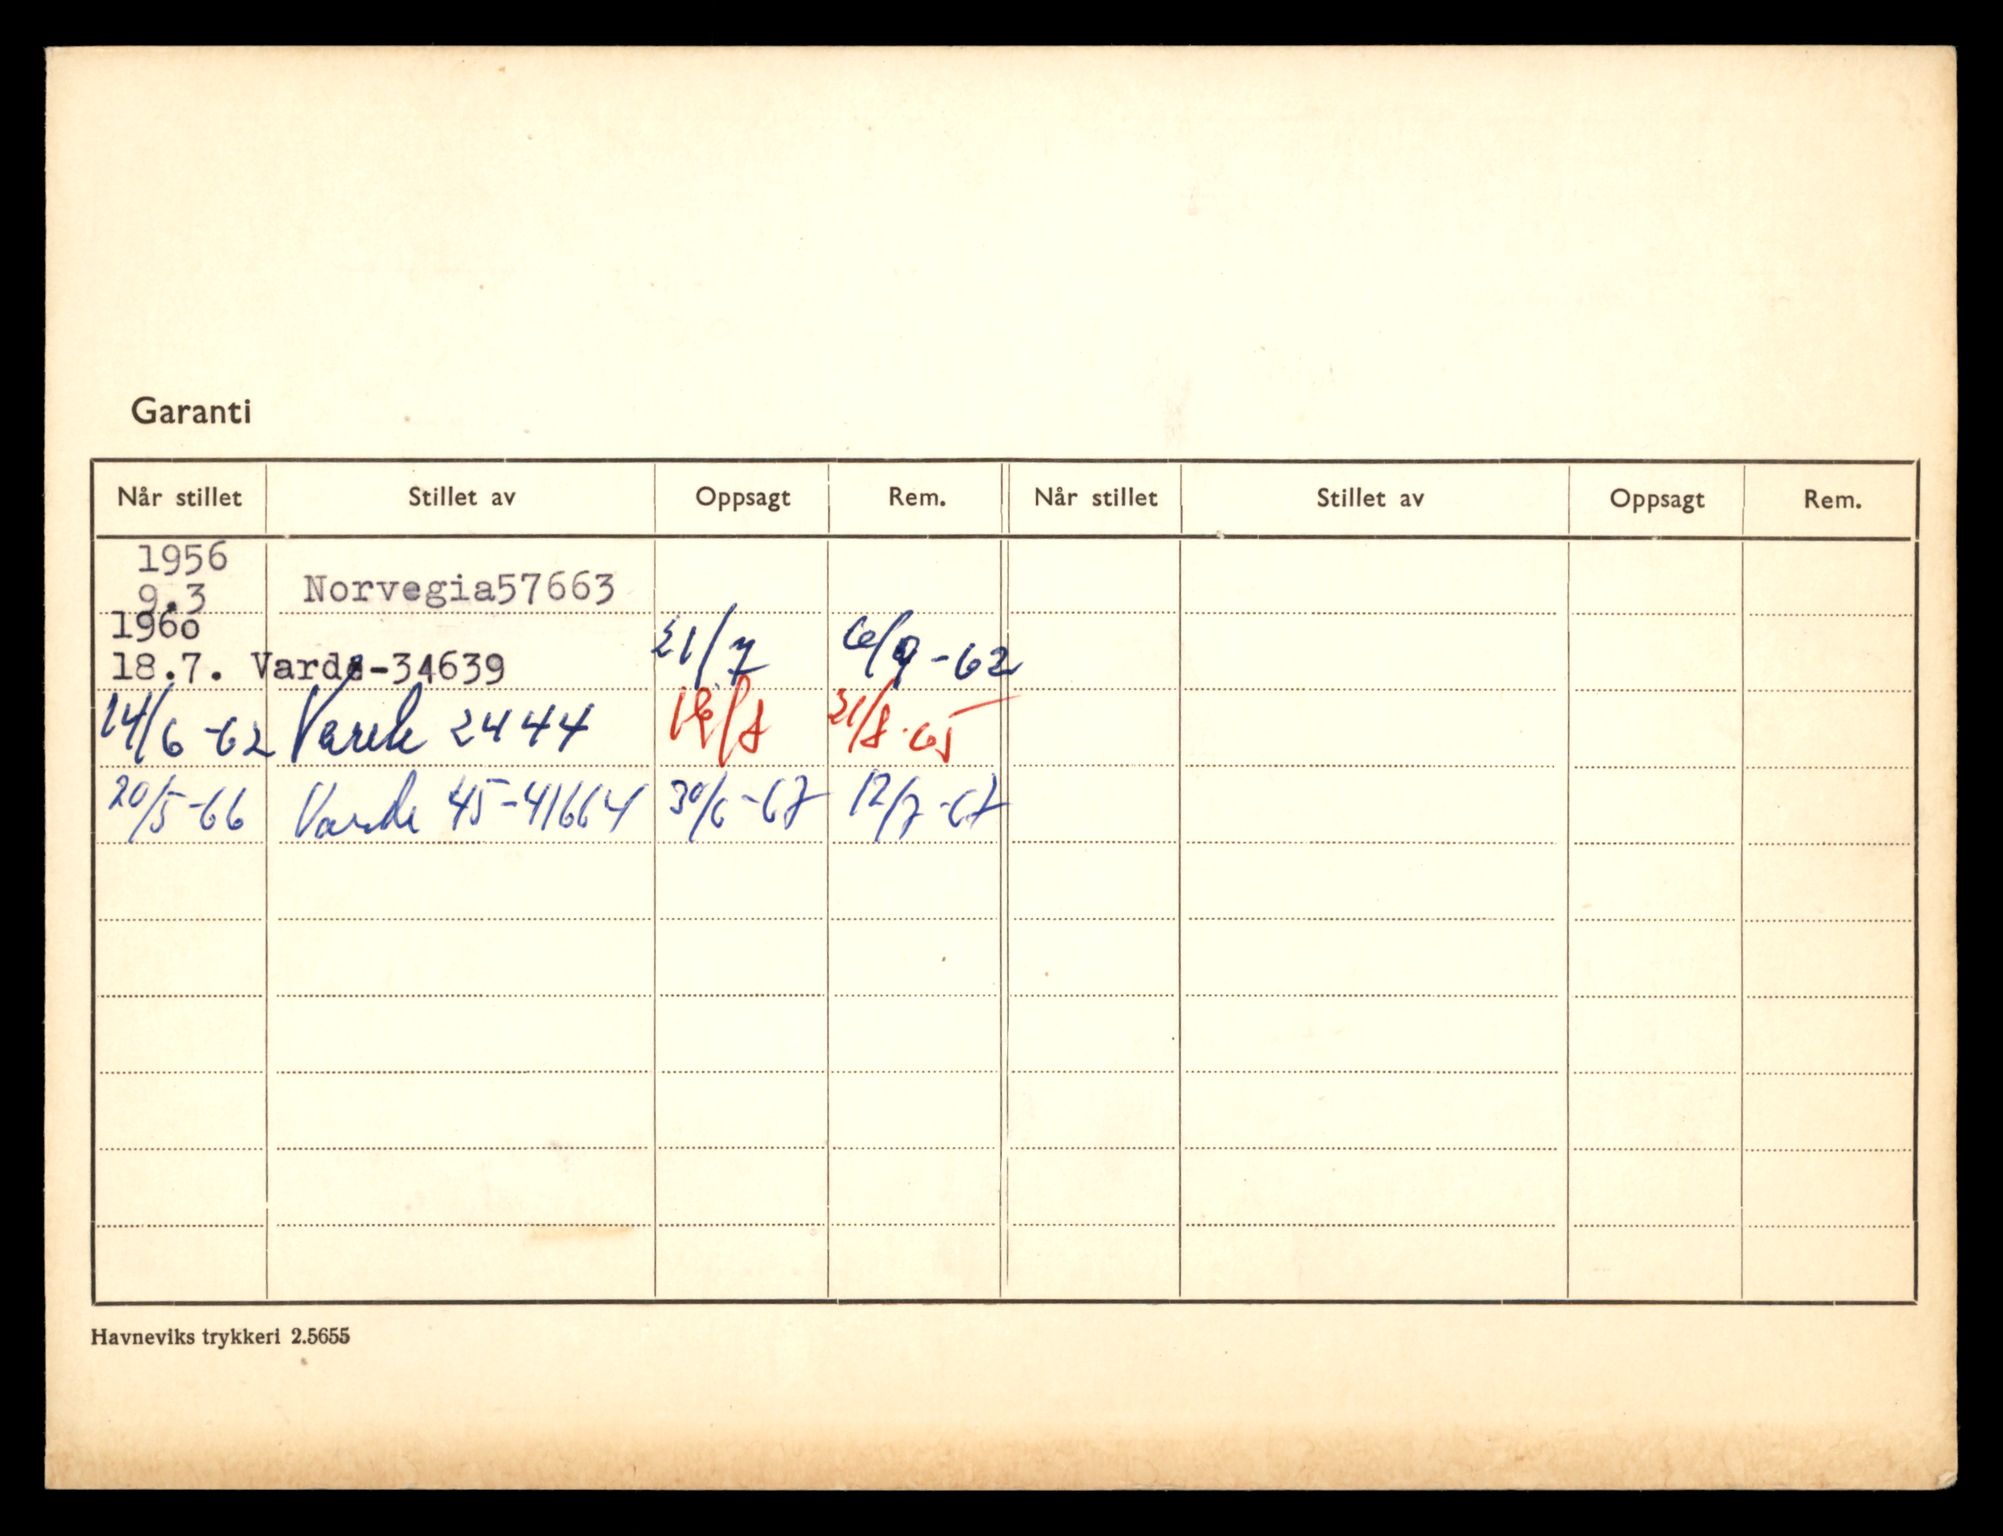 Garanti
Når stillet Stillet av Oppsagt Rem. Når stillet Stillet av Oppsagt Rem.
1956
9.3 Norvegia57663
1960
18.7. Varde-34639 21/7 6/9-62
14/6-62 Varde 2444 /8 21/8-65
20/5-66 Varde 45-41664 30/6-67 12/7-67
Havneviks trykkeri 2.5655